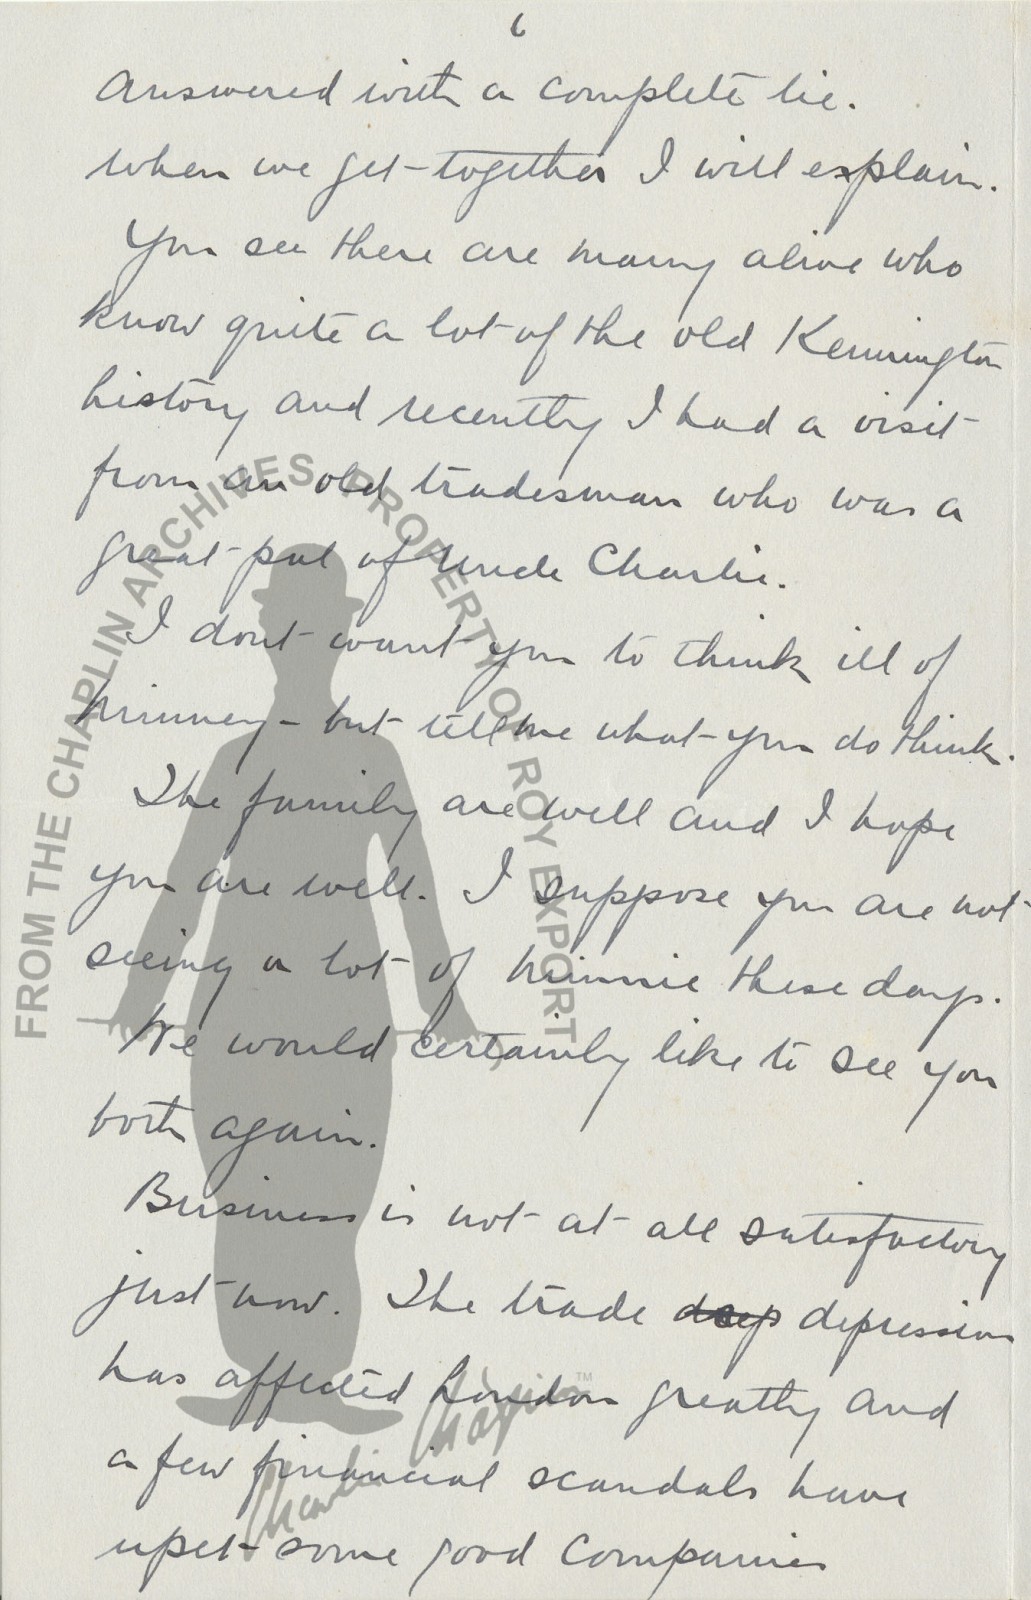 6
answered with a complete lie.
when we get together I will explain.
You see there are many alive who
know quite a lot of the old Kennington
history and recently I had a visit
from an old tradesman who was a
great pal of Uncle Charlie.
I dont want you to think ill of
Minney – but tell me what you do think.
The family are well and I hope
you are well. I suppose you are not
seeing a lot of Minnie these days.
We would certainly like to see you
both again.
Business is not at all satisfactory
just now. The trade dep depression
has affected London greatly and
a few financial scandals have
upset some good Companies
FROM THE CHAPLIN ARCHIVES, PROPERTY OF ROY EXPORT
Charlie Chaplin TM